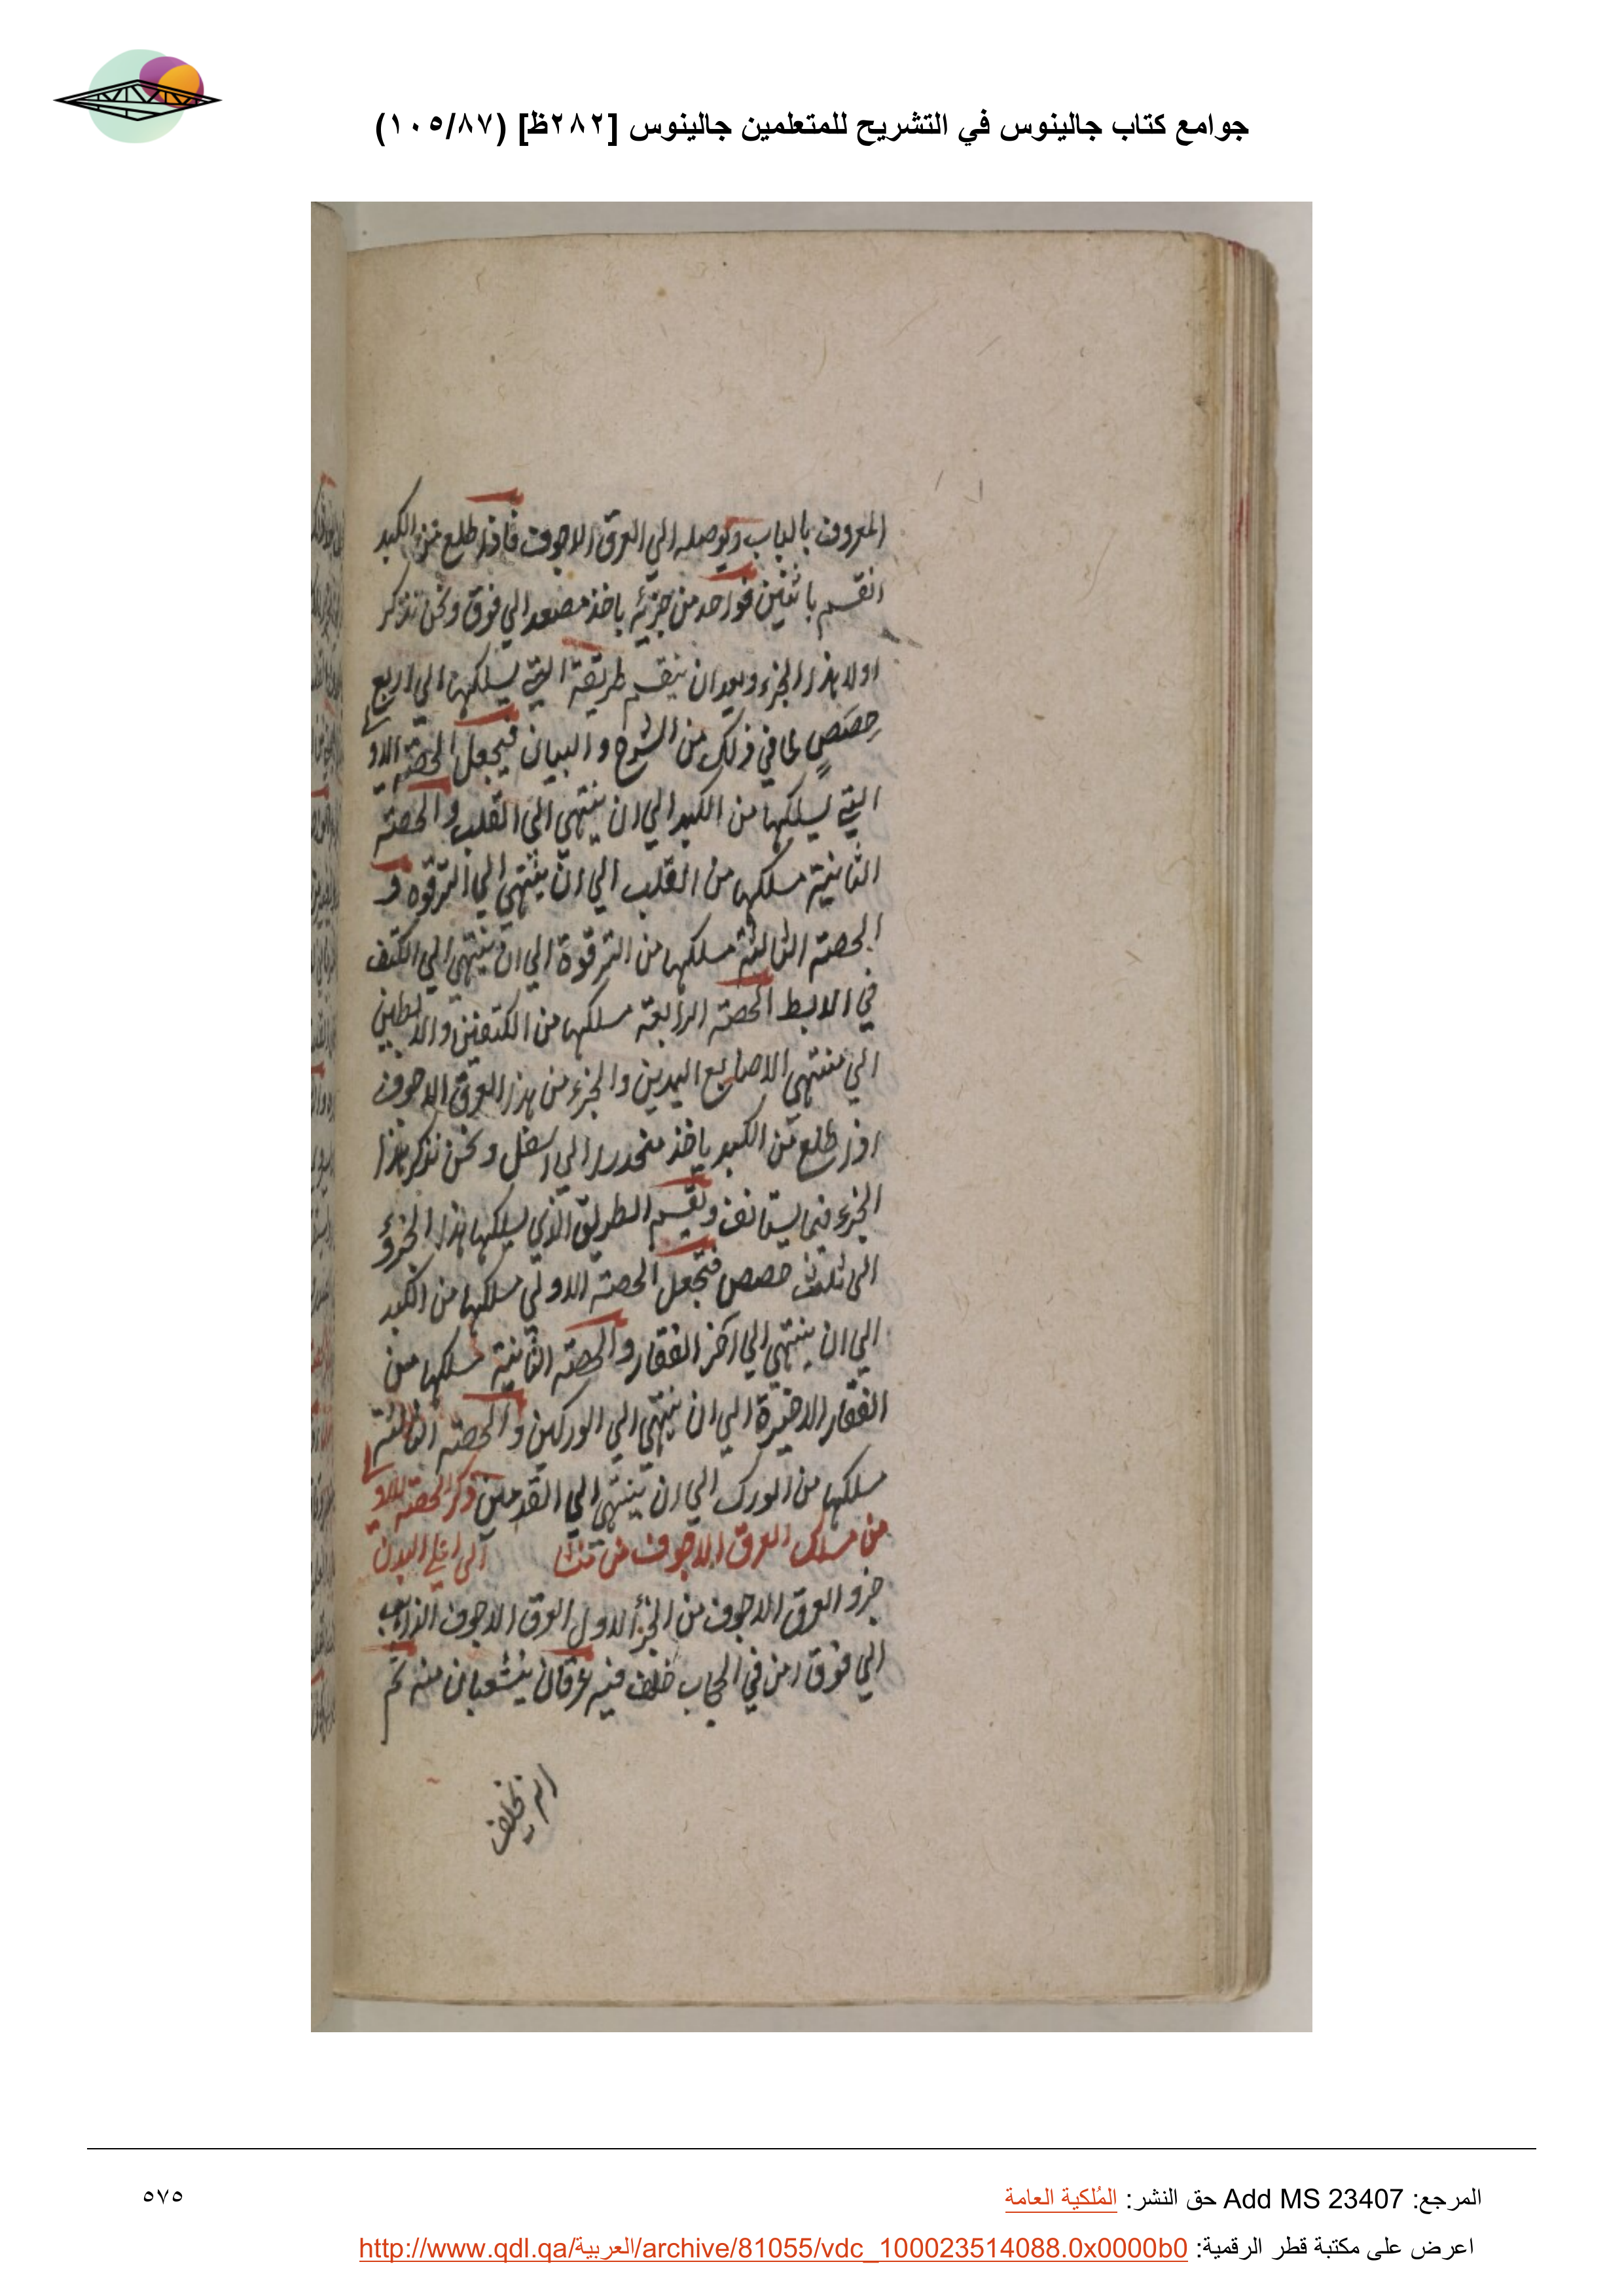 جوامع كتاب جالينوس في التشريح للمتعلمين جالينوس [٢٨٢ظ] (١٠٥/٨٧)
المعروف بالباب ويوصله الي العرق الاجوف فاذا طلع من الكبد
انقسم باثنين فواحد من جزئه ياخذ مصعدا الي فوق ونحن نذكر
اولا هذا الجزء وبعد ان ينقسم طريقة التي يسلكها الي اربع
حِصَصٍ لما في ذلك من الشرح والبيان فيجعل الحصة الاولي
التي يسلكها من الكبد الي ان ينتهي الي القلب والحصة
الثانية مسلكها من القلب الي ان ينتهي الي الترقوه و
الحصة الثالثة مسلكها من الترقوة الي ان ينتهي الي الكتف
في الابط الحصة الرابعة مسلكها من الكتفين والابطين
الي منتهي الاصابع اليدين والجزء من هذا العرق الاجوف
اذا طلع من الكبد ياخذ منحدرا الي اسفل ونحن نذكر هذا
الجزء فيما يستانف ونقسم الطريق الذي يسلكها هذا الجزؤ
الي ثلث حصص فنجعل الحصة الاولي مسلكها من الكبد
الي ان ينتهي الي آخر الفقار والحصة الثانية مسلكها من
الفقار الاخيرة الي ان ينتهي الي الوركين والحصة الثالثة
مسلكها من الورك الي ان ينتهي الي القدمين ذكر الحصة الاولي
من مسلك العرق الاجوف من الي اعلي البدن
جزو العرق الاجوف من الجزأ الاول العرق الاجوف الذاهب
الي فوق من في الحجاب خلف فيه عرقان ينشعبان منه ثم
انه يخلف
المرجع: Add MS 23407 حق النشر: المُلكية العامة
٥٧٥
اعرض على مكتبة قطر الرقمية: http://www.qdl.qa/العربية/archive/81055/vdc_100023514088.0x0000b0